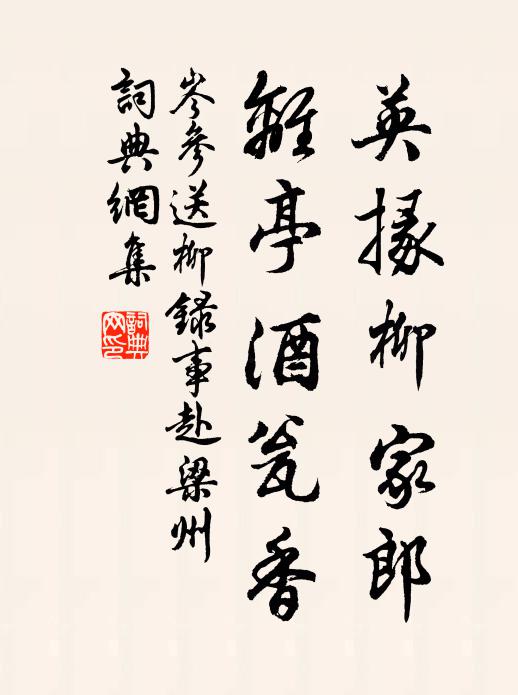 英掾柳家郎
離亭酒瓮香
岑參送柳錄事赴梁州
詞典網集
詞典
网印